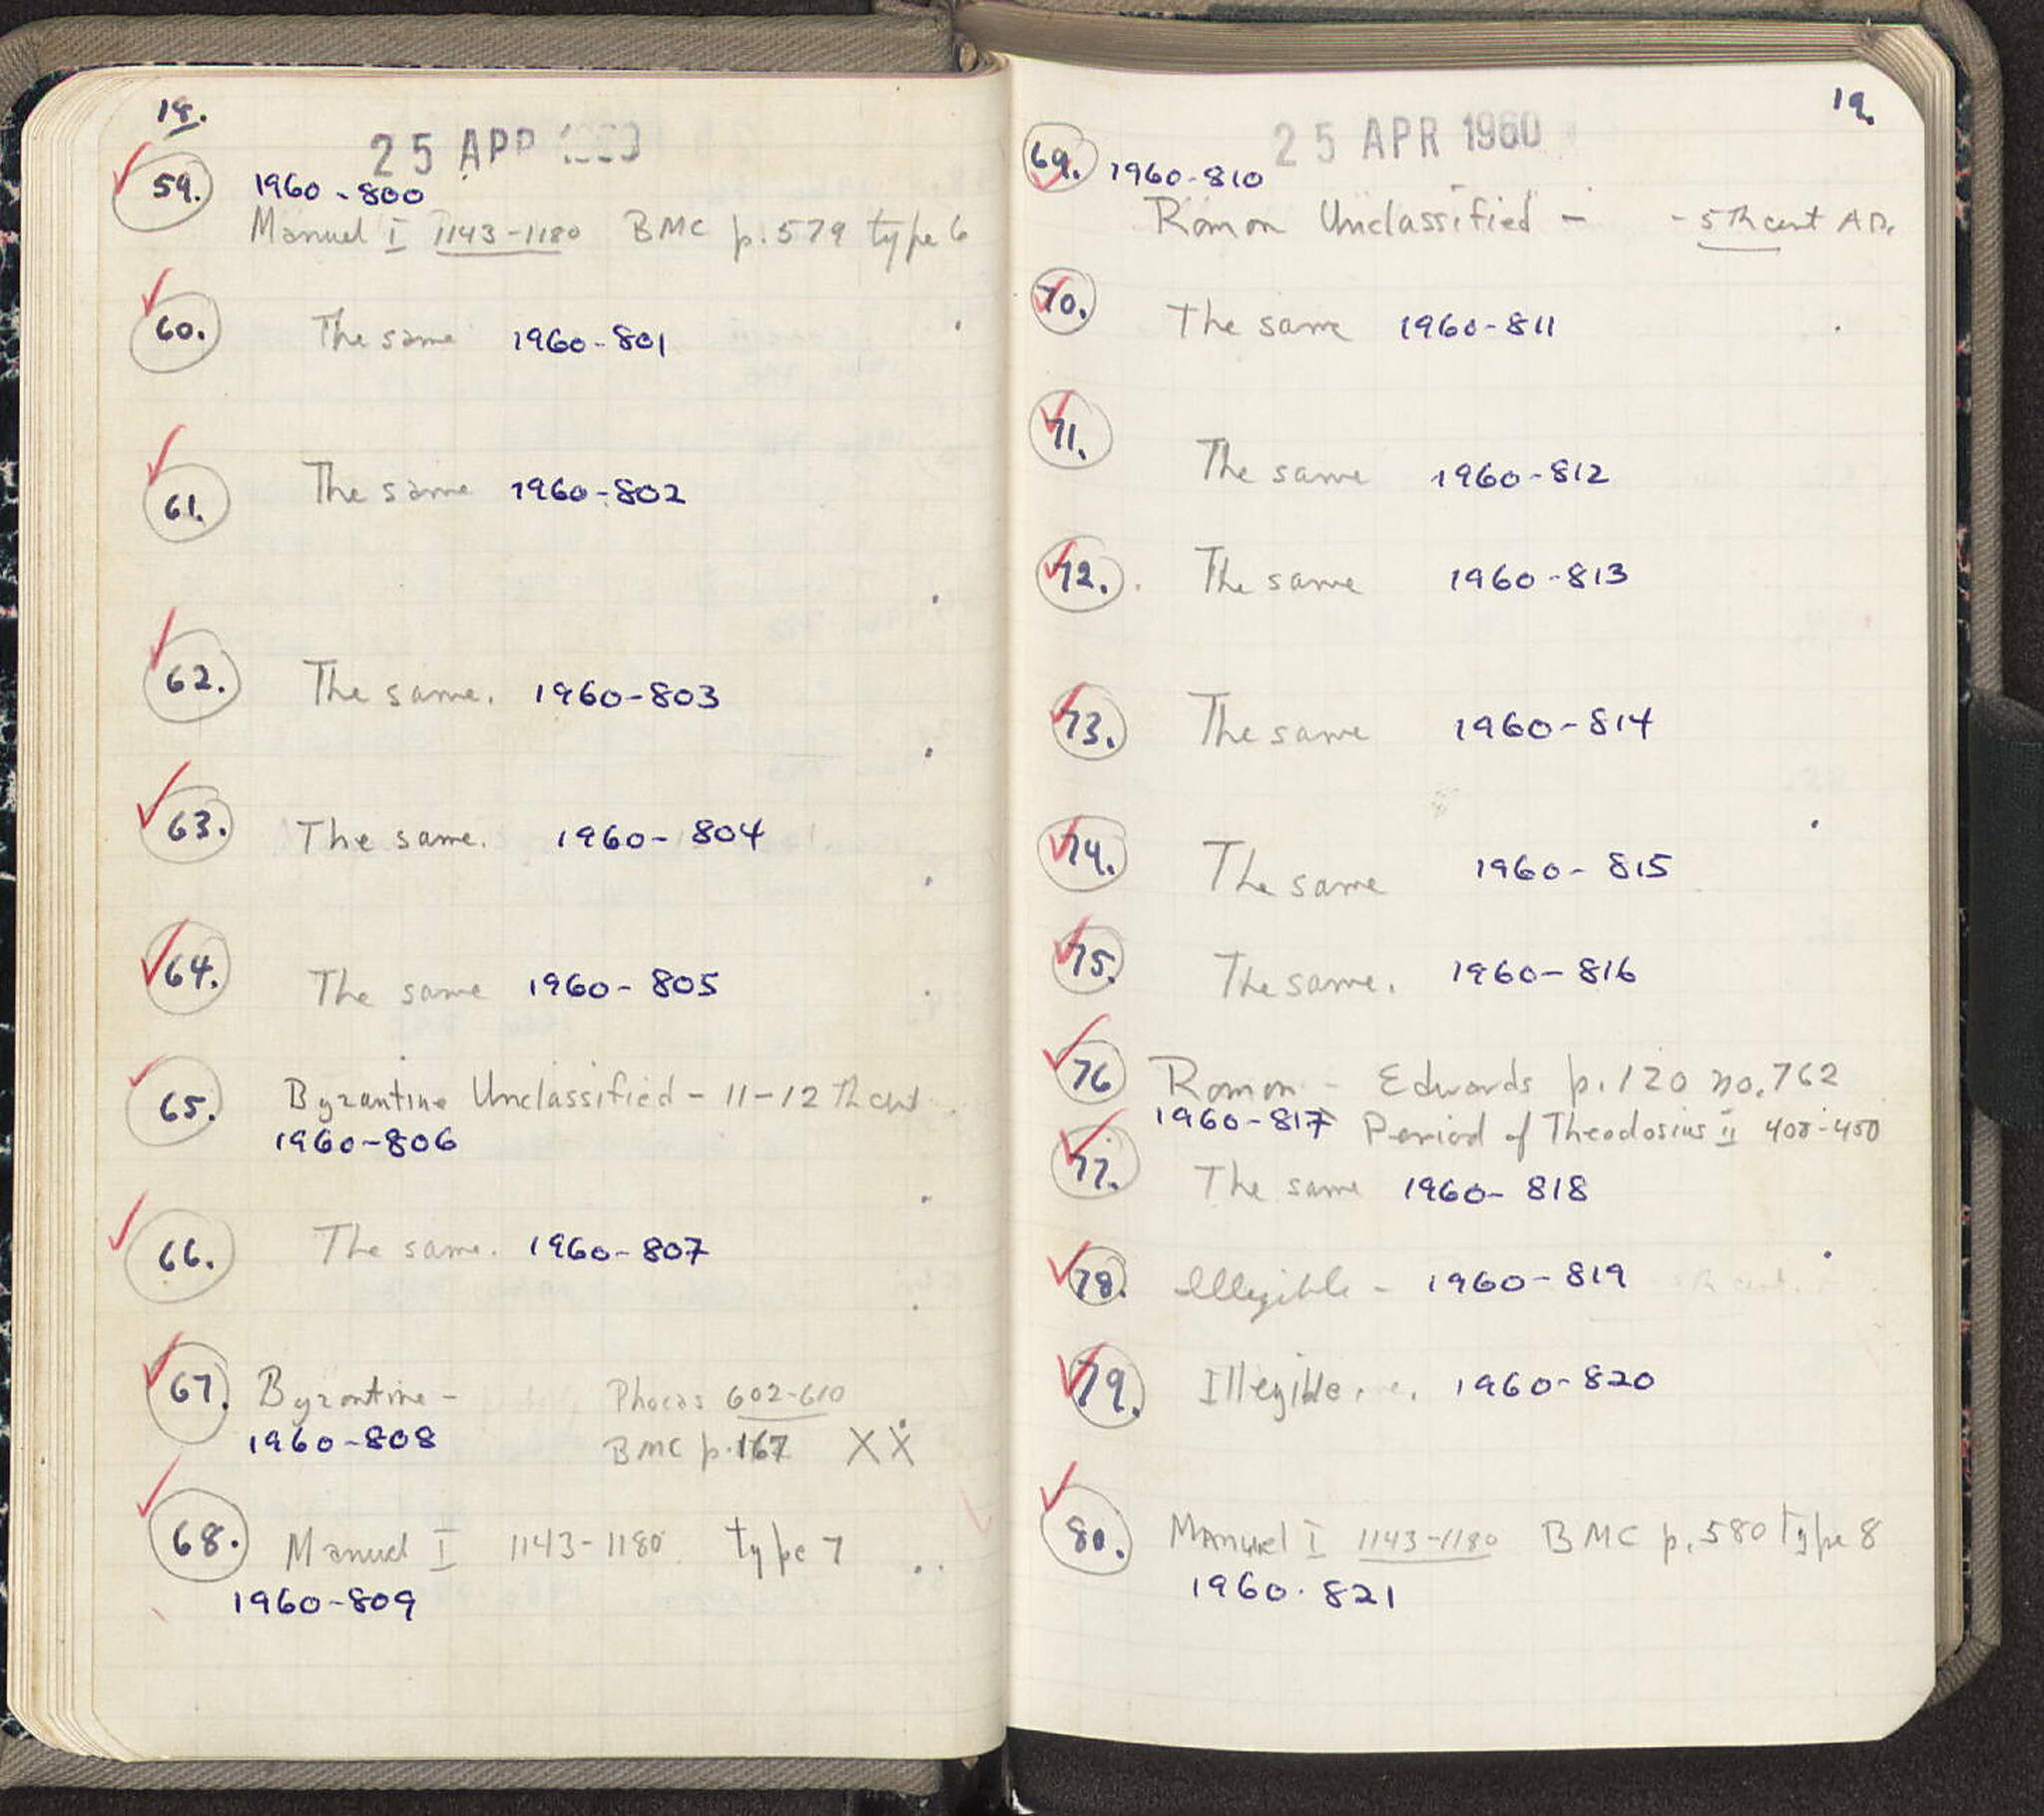 18.
25 APR 1960
59. 1960-800
Manuel I 1143-1180 BMC p.579 type 6
60. The same 1960-801
61. The same 1960-802
62. The same. 1960-803
63. The same. 1960-804
64. The same 1960-805
65. Byzantine Unclassified - 11-12 Th cent
1960-806
66. The same. 1960-807
67. Byzantine - Phocas 602-610
1960-808 BMC p.167 XX
68. Manuel I 1143-1180 type 7
1960-809
19.
25 APR 1960
69. 1960-810
Roman Unclassified - - 5Th cent AD.
70. The same 1960-811
71. The same 1960-812
72. The same 1960-813
73. The same 1960-814
74. The same 1960-815
75. The same. 1960-816
76 Roman - Edwards p.120 no.762
1960-817 Period of Theodosius II 408-450
77. The same 1960-818
78. Illegible - 1960-819
79. Illegible. 1960-820
80. Manuel I 1143-1180 BMC p.580 type 8
1960.821